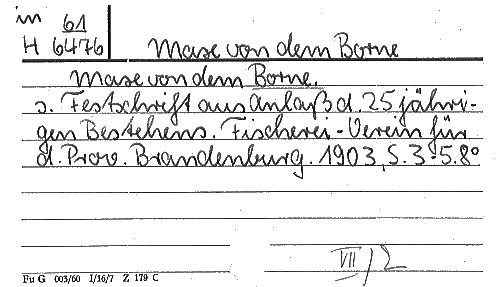 in 61
H 6476
Maxe von dem Borne
Maxe von dem Borne.
s. Festschrift aus Anlaß d. 25 jähri-
gen Bestehens. Fischerei-Verein für
d. Prov. Brandenburg. 1903, S. 3-5. 8°
VII/2
Fu G 003/60 I/16/7 Z 179 C